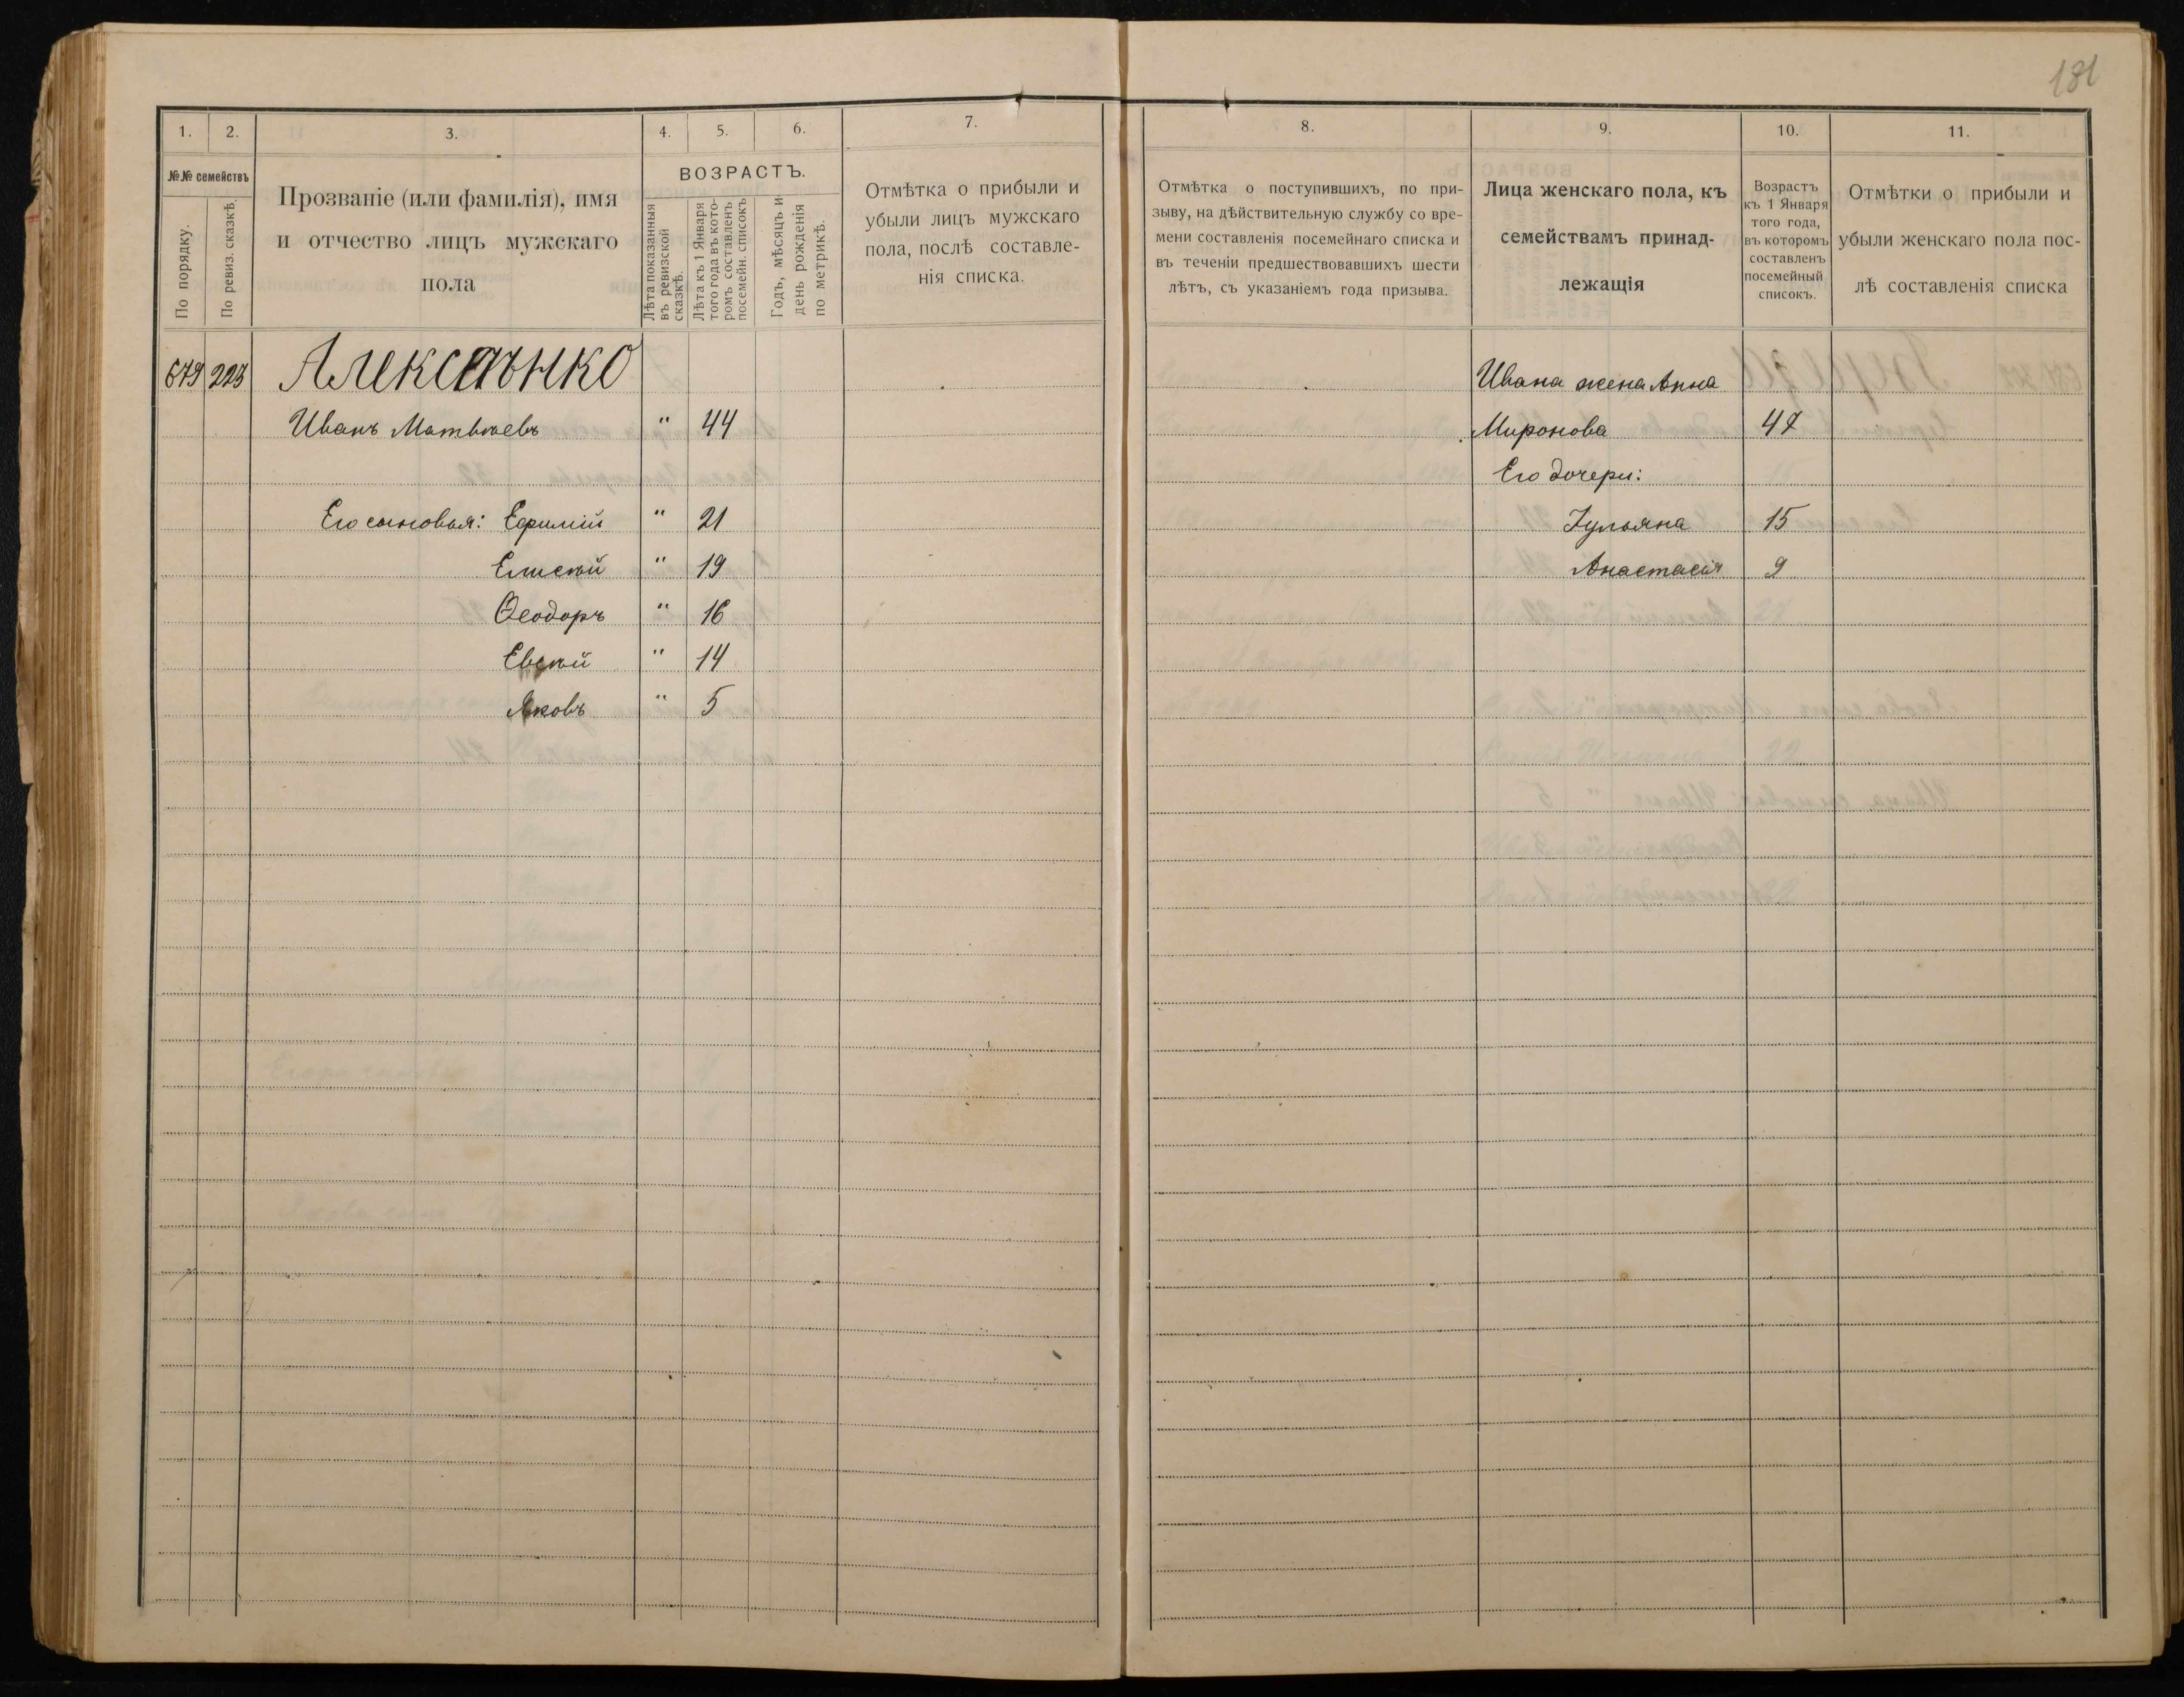 181
1. 2. 3. 4. 5. 6. 7.
№№ семействъ
По порядку.
По ревиз. сказкѣ.
Прозваніе (или фамилія), имя
и отчество лицъ мужскаго
пола
ВОЗРАСТЪ.
Лѣта показанныя
въ ревизской
сказкѣ.
Лѣта къ 1 Января
того года въ кото-
ромъ составленъ
посемейн. списокъ
Годъ, мѣсяцъ и
день рожденія
по метрикѣ.
Отмѣтка о прибыли и
убыли лицъ мужскаго
пола, послѣ составле-
нія списка.
679 223 Алексѣнко
Иванъ Матвѣевъ " 44
Его сыновья: Ефимій " 21
Елисѣй " 19
Ѳеодоръ " 16
Евсѣй " 14
Яковъ " 5
8. 9. 10. 11.
Отмѣтка о поступившихъ, по при-
зыву, на дѣйствительную службу со вре-
мени составленія посемейнаго списка и
въ теченіи предшествовавшихъ шести
лѣтъ, съ указаніемъ года призыва.
Лица женскаго пола, къ
семействамъ принад-
лежащія
Возрастъ
къ 1 Января
того года,
въ которомъ
составленъ
посемейный
списокъ.
Отмѣтки о прибыли и
убыли женскаго пола пос-
лѣ составленія списка
Ивана жена Анна
Миронова 47
Его дочери:
Іульяна 15
Анастасія 9